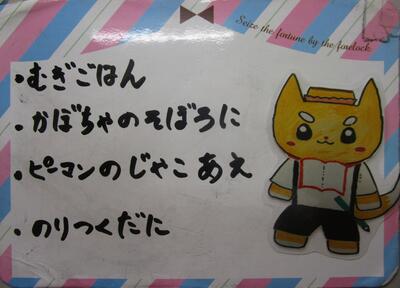 Seize the fortune by the forelock.
・むぎごはん
・かぼちゃのそぼろに
・ピーマンのじゃこあえ
・のりつくだに